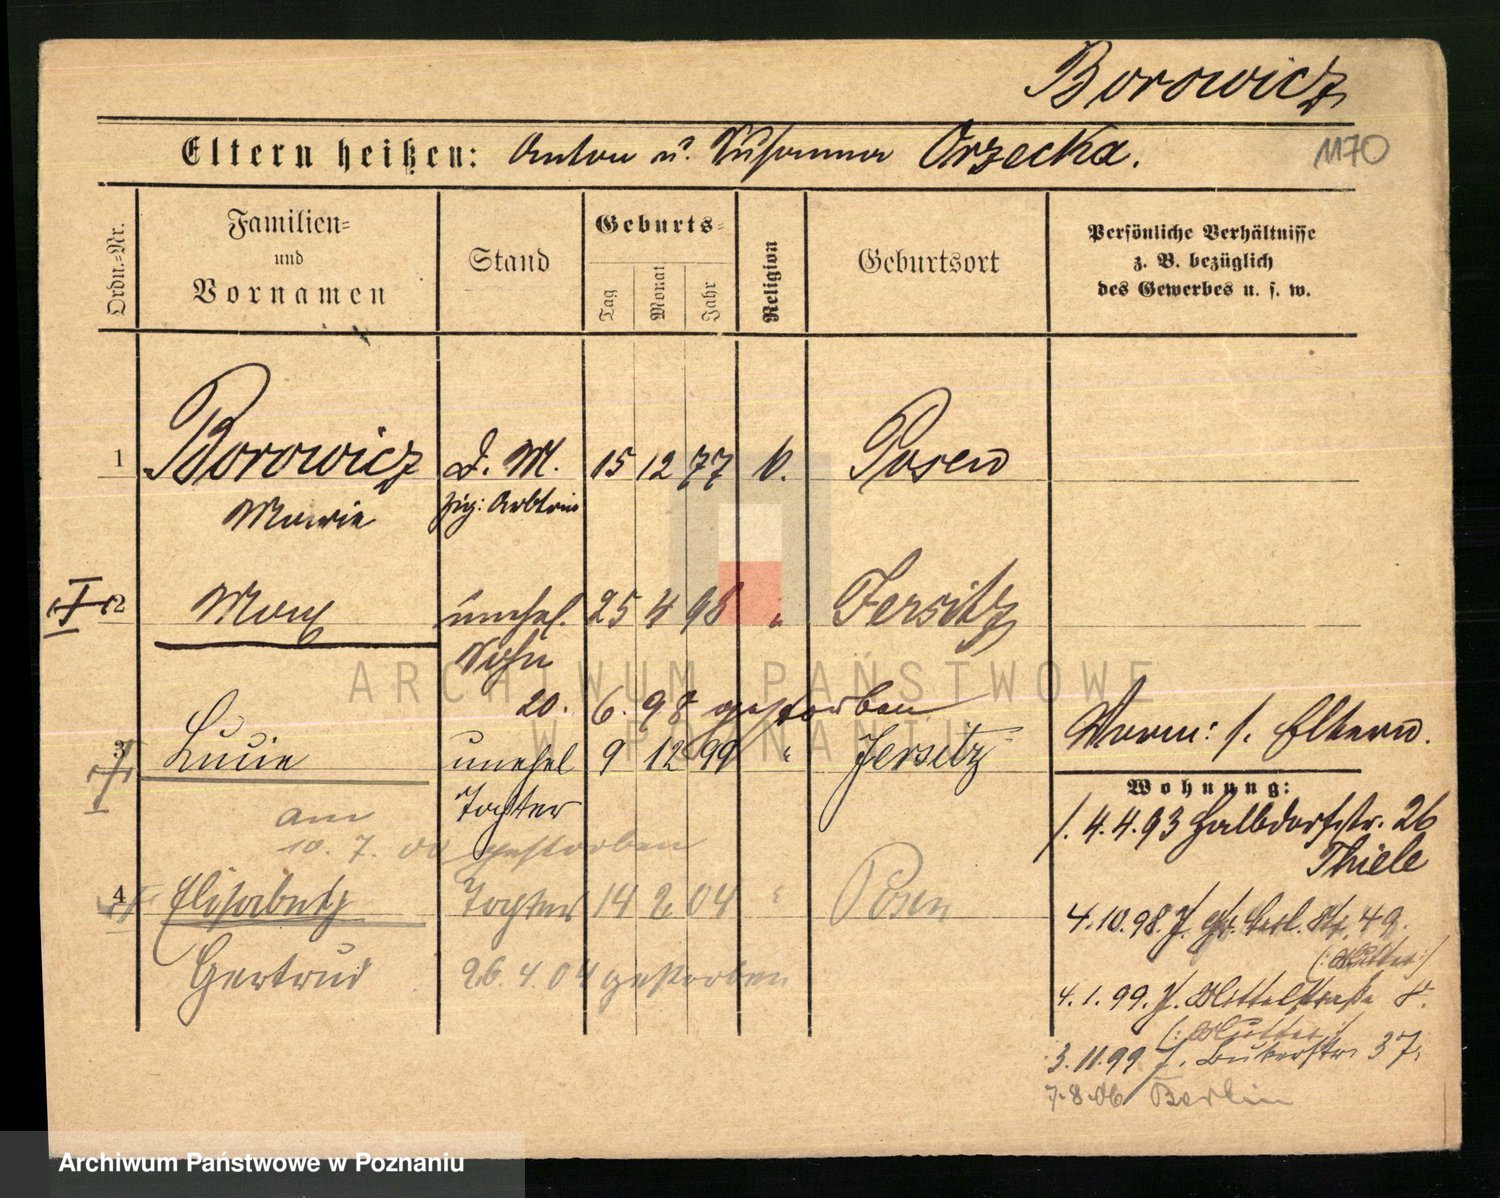 Borowicz
Eltern heißen: Anton u. Susanna Orzecka.
1170
Ordn.-Nr.
Familien-
und
Vornamen
Stand
Geburts-
Tag
Monat
Jahr
Religion
Geburtsort
Persönliche Verhältnisse
z. B. bezüglich
des Gewerbes u. s. w.
1 Borowicz D. M. 15 12 77 k. Posen
Marie Zig: Arbtrin
2 Max unehel. 25 4 98 " Jersitz
Sohn
20. 6. 98 gestorben
Vorm: s. Eltern.
3 Lucie unehel 9 12 99 " Jersitz
Tochter
Wohnung:
am
10. 7. 00 gestorben
4.4.93 Halbdorfstr. 26
Thiele
4 Elisabeth Tochter 14 2 04 " Posen
Gertrud 26. 4. 04 gestorben
4.10.98. J. gr. Berl. Str. 49.
(:Mutter:)
4.1.99. J. Mittelstraße 8.
(:Mutter:)
3.11.99 J. Bukerstr. 37.
7.8.06 Berlin
ARCHIWUM PAŃSTWOWE
W POZNANIU
Archiwum Państwowe w Poznaniu